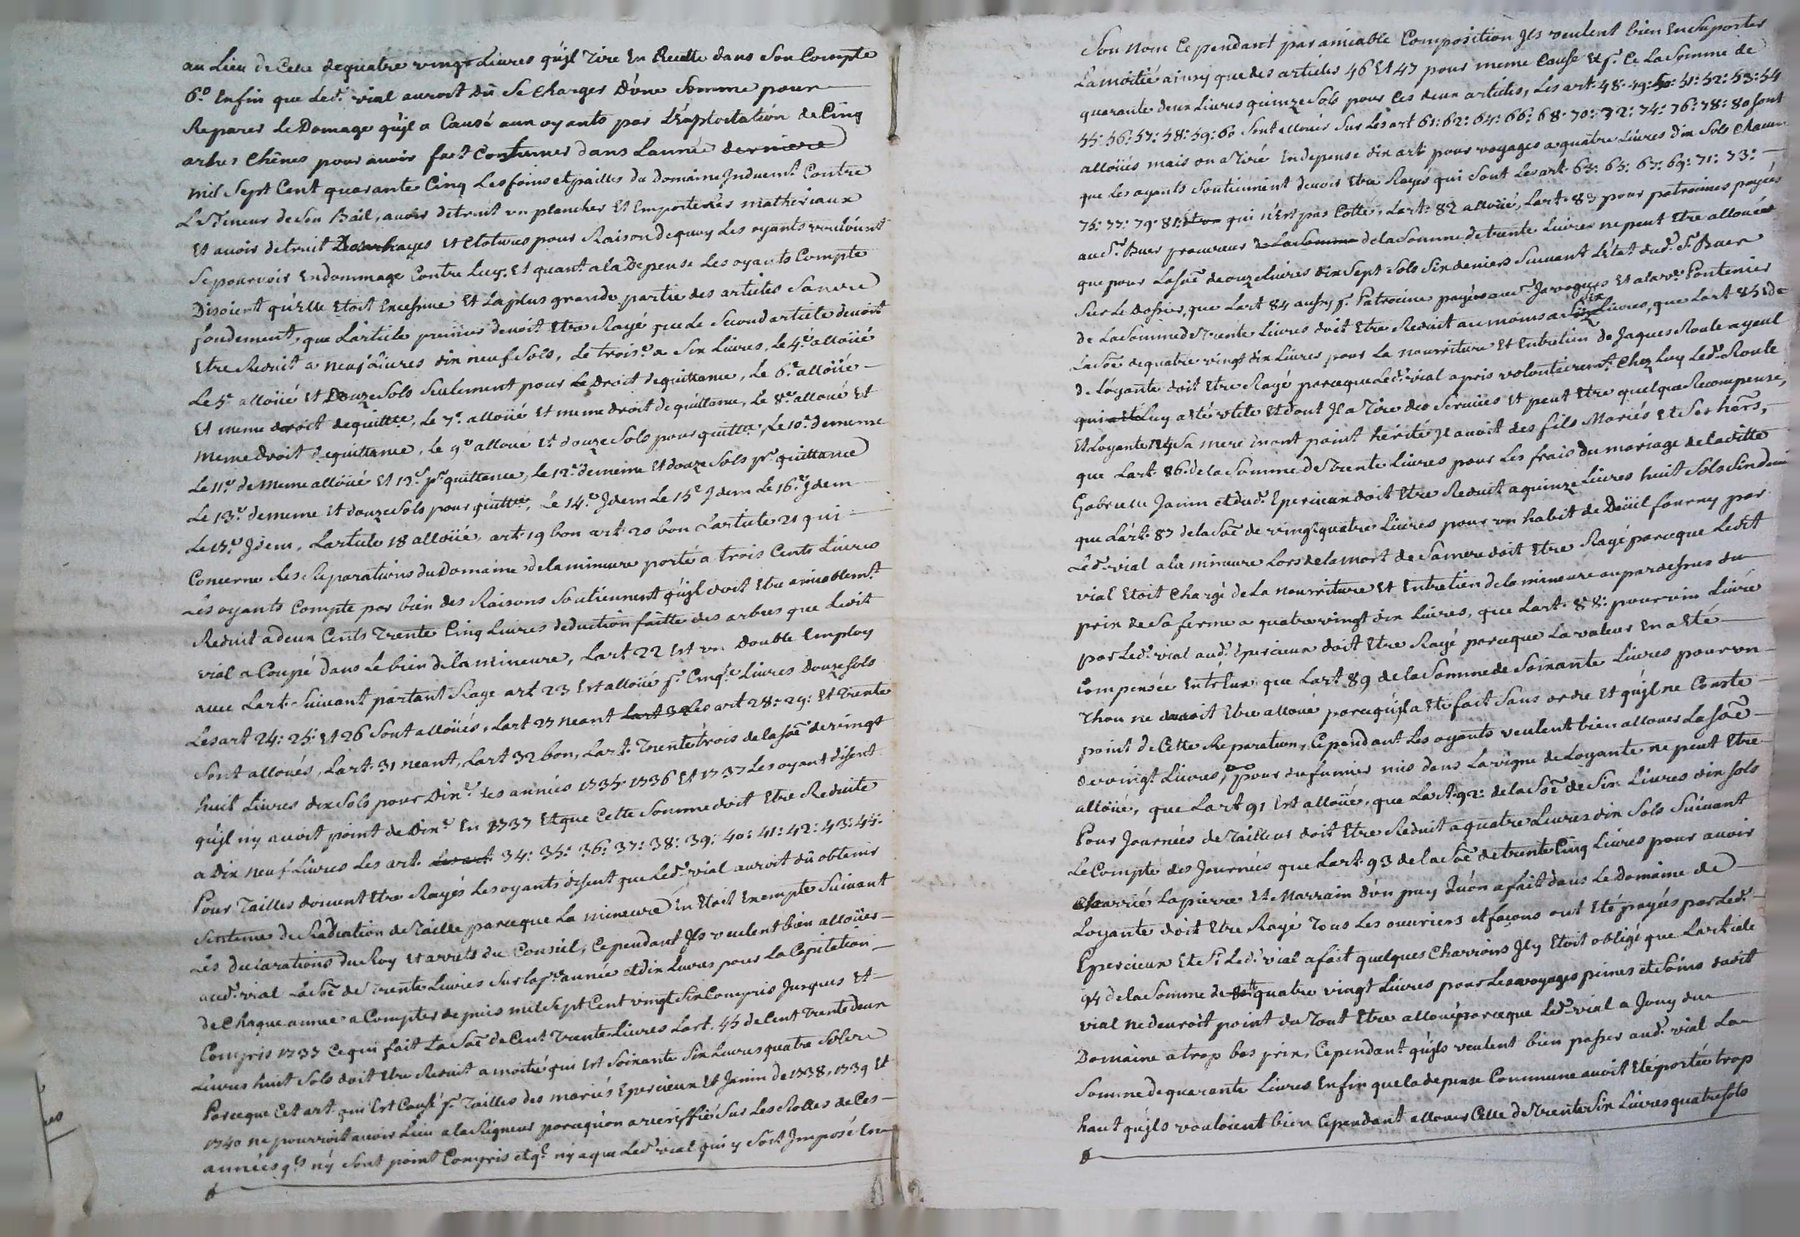 au Lieu de Celle de quatre vingt Livres qu'jl Tire En Recette dans Son Compte
6.o Enfin que Led.t vial auroit Dû Se Charger D'une Somme pour
Reparer Le Domage qu'jl a Causé aux oyants par L'exploitation de Cinq
arbres Chênes pour auoir fait Consumer dans Lannée derniere
mil Sept Cent quarante Cinq Les foins et pailles du Domaine Jnduem.t Contre
La Teneur de Son Bail, auoir detruit un plancher Et Emporté Les matheriaux
Et auoir detruit Les hayes Et Clotures pour Raison de quoy Les oyants vouloiint
Se pouruoir En dommage Contre Luy. Et quant a la Depense Les oyants Compte
Disoient qu'elle Etoit Excessiue Et La plus grande partie des articles Sans
fondement, que L'article premier deuoit Etre Rayé que Le Second article deuoit
Etre Reduit a neuf Liures dix neuf Sols, Le trois.e a Six Liures, Le 4.e alloüé
Le 5.e alloüé Et Douze Sols Seulement pour Le Droit de quittance, Le 6.e alloüé
Et meme droit de quittce, Le 7.e alloüé Et meme droit de quittance, Le 8.e alloué Et
meme droit de quittance, Le 9.e alloué Et douze Sols pour quittce, Le 10.e de meme
Le 11.e de meme alloüé Et 12.s p.r quittance, Le 12.e de meme Et douze Sols p.r quittance
Le 13.e de meme Et douze Sols pour quittce, Le 14.e Jdem Le 15.e Jdem Le 16.e Jdem
Le 17.e Jdem, L'article 18 alloüé, art. 19 bon art. 20 bon L'article 21 qui
Concerne Les Reparations du Domaine de la mineure porté a trois Cents Liures
Les oyants Compte par bien des Raisons Soutiennent qu'jl doit Etre amiablem.t
Reduit a deux Cents Trente Cinq Liures deduction faitte des arbres que Ledit
vial a Coupé dans Le bien de la mineure, Lart 22 Est un Double Employ
auec Lart. Suiuant partant Rayé art. 23 Est alloüé p.r Cinq.te Liures Douze Sols
Les art 24: 25: Et 26 Sont alloüés, Lart 27 neant Les art 28: 29: Et Trente
Sont alloués, Lart. 31 neant, Lart 32 bon, Lart. Trente trois de la Soē de vingt
huit Liures dix Sols pour Dix.e Les années 1735. 1736 Et 1737 Les oyant disent
qu'jl n'y auoit point de Dix.e En 1737 Et que Cette Somme doit Etre Reduite
a Dix neuf Liures Les art. 34: 35: 36: 37: 38: 39: 40: 41: 42: 43: 44:
Pour Tailles doiuent Etre Rayés Les oyants disent que Led.t vial auroit dû obtenir
Sentence de Radiation de Taille parceque La mineure En Etoit Exempte Suiuant
Les Declarations du Roy Et arrêts du Conseil, Cependant Jls veulent bien alloüer
aud.t vial La Soē de Trente Liures Sur La p.re année et dix Liures pour La Capitation
de Chaque année a Compter depuis mil Sept Cent vingt Six Compris Jusques Et
Compris 1737 Ce qui fait La Soē de Cent Trente Liures Lart. 45 de Cent Trente deux
Liures huit Sols doit Etre Reduit a moitié qui Est Soixante Six Liures quatre Sols
Parceque Cet art. qui Est Causé p.r Tailles des mariés Epercieux Et Janin de 1738, 1739 Et
1740 ne pourroit auoir Lieu a La Rigueur parcequ'on a veriffié Sur Les Rolles de Ces
années q.ls n'y Sont point Compris et q.l n'y a que Led.t vial qui y Soit Jmposé En
Son nom Cependant par amiable Composition Jls veulent bien En Suporter
La moitié ainsy que des articles 46 Et 47 pour meme Cause Et p.r Ce La Somme de
quarante deux Liures quinze Sols pour Ces deux articles, Les art. 48: 49: 50: 51: 52: 53: 54
55: 56: 57: 58: 59: 60 Sont alloüés Sur Les art 61: 62: 64: 66: 68: 70: 72: 74: 76: 78: 80 Sont
alloüés mais on a Tiré En depense dix art pour voyages a quatre Liures dix Sols Chacun
que Les oyants Soutiennent deuoir Etre Rayés qui Sont Les art 63: 65: 67: 69: 71: 73:
75: 77: 79: 81: qui n'Est pas Cotté, Lart. 82 alloüé, Lart. 83 pour patrocines payés
au S.r Buer procureur de la Somme de trente Liures ne peut Etre alloué
que pour La Soē de onze Liures Dix Sept Sols Six deniers Suiuant L'Etat dud.t S.r Buer
Sur Le Dossier, que Lart 84 aussy p.r Patrocines payés aux Et a la ve. Pontenier
de La Somme de Trente Liures doit Etre Reduit au moins a Dix Liures, que Lart 85 de
La Soē de quatre vingt dix Liures pour La nourriture Et Entretien de Jaques Roule ayeul
de Loyante doit Etre Rayé parceque Led.t vial a pris volontairem.t Chez Luy Led.t Roule
qui Luy a Eté vtile Et dont Jl a Tiré des Seruices Et peut Etre quelque Recompense,
Et Loyante Ny Sa mere n'ont point hérité Jl auoit des fils Mariés Et Ses hers,
que Lart. 86 de la Somme de Trente Liures pour Les frais du mariage de laditte
Gabrielle Janin et dud.t Epercieux doit Etre Reduit a quinze Liures huit Sols Six den
que L'art. 87 de la Soē de vingt quatre Liures pour vn habit de Deüil fourny par
Led.t vial a la mineure Lors de la mort de Sa mere doit Etre Rayé parceque Ledit
vial Etoit Chargé de La nourriture Et Entretien de la mineure au par dessus du
prix de Sa ferme a quatre vingt dix Liures, que Lart. 88: pour vin Liuré
par Led.t vial aud.t Epercieux doit Etre Rayé parceque La valeur En a Eté
Compensée Entr'Eux que Lart. 89 de la Somme de Soixante Liures pour vn
Thou ne deuoit Etre alloué parcequ'jl a Eté fait Sans ordre Et qu'jl ne Conste
point de Cette Reparation, Cependant Les oyants veulent bien alloüer La Soē
de vingt Liures, pour du fumier mis dans La vigne de Loyante ne peut Etre
alloüé, que Lart 91 Est alloüé, que Lart 92: de la Soē de Six Liures dix Sols
Pour Journées de Tailleur doit Etre Reduit a quatre Liures dix Sols Suiuant
Le Compte des Journées que Lart. 93 de la Soē de trente Cinq Liures pour auoir
Charrié La pierre Et Marrain d'un puy qu'on a fait dans Le Domaine de
Loyante doit Etre Rayé Tous Les ouuriers et façons ont Eté payés par Led.t
Epercieux Et Si Led.t vial a fait quelques Charrois Jl y Etoit obligé que L'article
94 de la Somme de quatre vingt Liures pour Les voyages peines et Soins dudit
vial ne deuroit point du Tout Etre alloué parceque Led.t vial a Jouy du
Domaine a trop bas prix, Cependant qu'jls veulent bien passer aud.t vial La
Somme de quarante Liures Enfin que la depense Commune auoit Eté portée trop
haut qu'jls vouloient bien Cependant allouer Celle de Trente Six Liures quatre Sols